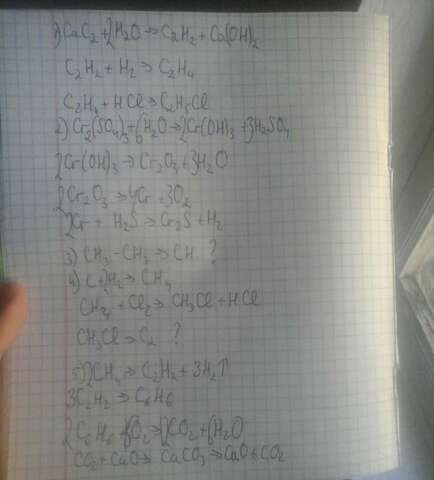 1) CaC2 + 2H2O → C2H2 + Ca(OH)2
C2H2 + H2 → C2H4
C2H4 + HCl → C2H5Cl
2) Cr2(SO4)3 + 6H2O → 2Cr(OH)3 + 3H2SO4
2Cr(OH)3 → Cr2O3 + 3H2O
2Cr2O3 → 4Cr + 3O2
2Cr + H2S → Cr2S + H2
3) CH3 - CH3 → CH ?
4) C + 2H2 → CH4
CH4 + Cl2 → CH3Cl + HCl
CH3Cl → C2 ?
5) 2CH4 → C2H2 + 3H2↑
3C2H2 → C6H6
2C6H6 + O2 → CO2 + 6H2O
CO2 + CaO → CaCO3 → CaO + CO2